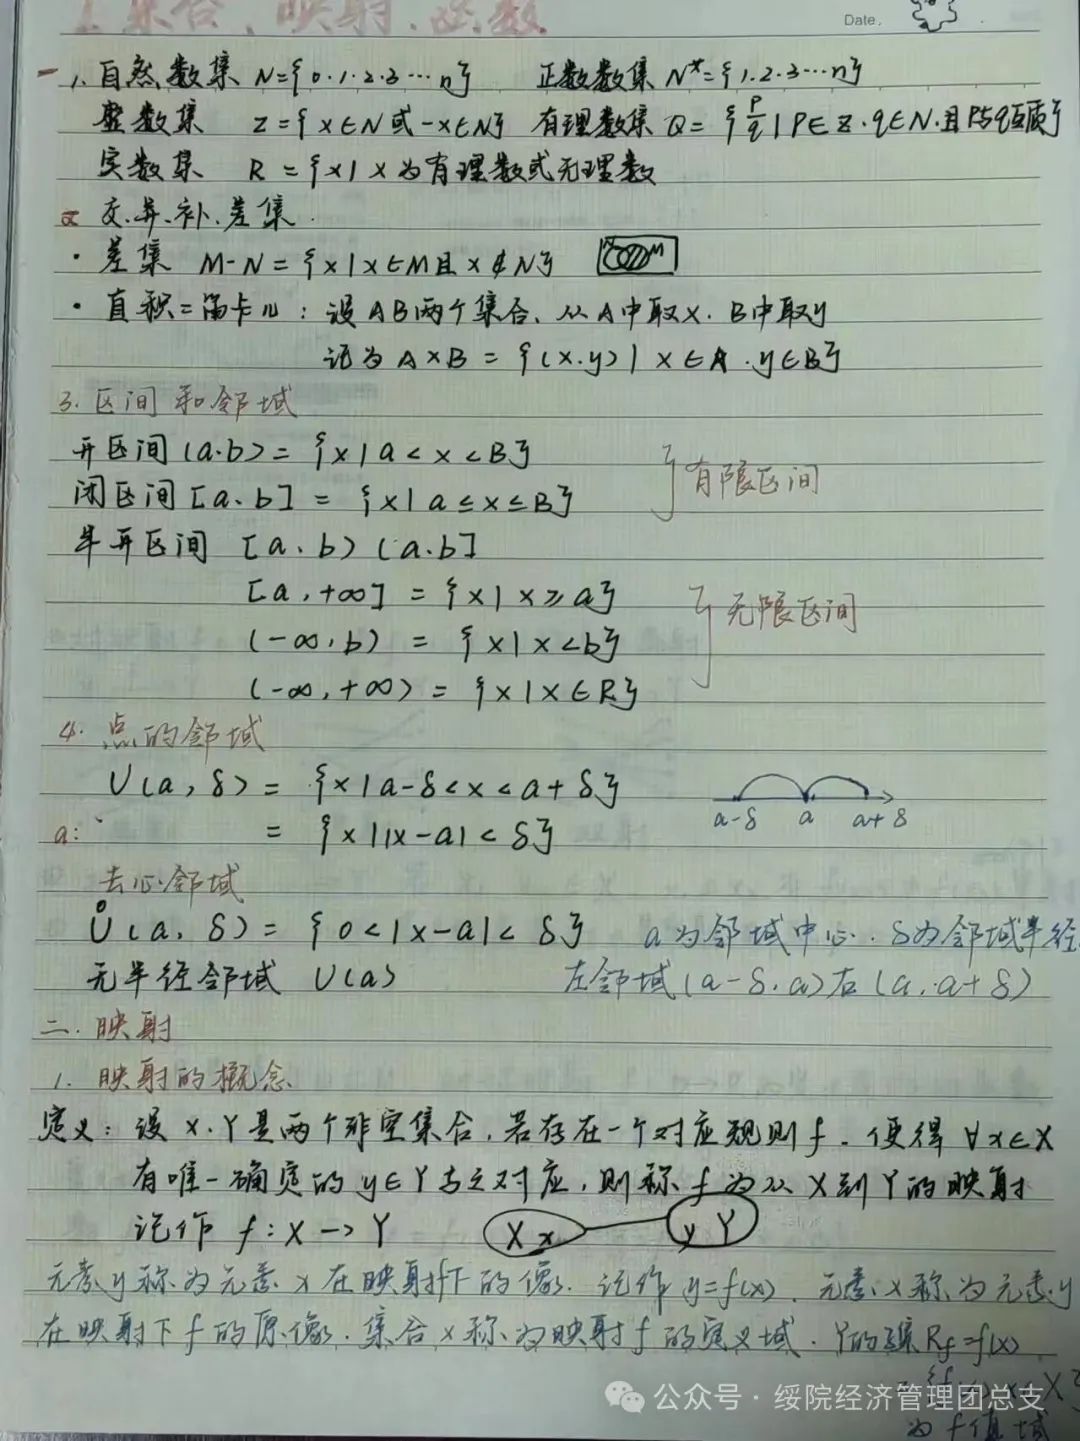 1.集合、映射、函数
Date.
一 1、自然数集 N={0·1·2·3…n} 正数数集 N*={1.2.3…n}
整数集 Z={x∈N或-x∈N} 有理数集 Q={p/q|P∈Z·q∈N·且P与q互质}
实数集 R={x|x为有理数或无理数
2 交、并、补、差集.
· 差集 M-N={x|x∈M且x∉N} M
· 直积=笛卡儿:设AB两个集合、从A中取x. B中取y
记为 A×B={(x.y)|x∈A.y∈B}
3.区间和邻域
开区间(a.b)={x|a<x<B}
闭区间[a、b]={x|a≤x≤B} 有限区间
半开区间 [a、b) (a.b]
[a,+∞]={x|x≥a}
(-∞,b)={x|x<b} 无限区间
(-∞,+∞)={x|x∈R}
4.点的邻域
U(a,δ)={x|a-δ<x<a+δ}
a-δ a a+δ
a: ={x||x-a|<δ}
去心邻域
Ů(a,δ)={0<|x-a|<δ} a为邻域中心.δ为邻域半径
无半径邻域 U(a) 左邻域(a-δ,a)右(a,a+δ)
二.映射
1.映射的概念
定义:设X.Y是两个非空集合,若存在一个对应规则f.使得∀x∈X
有唯一确定的y∈Y与之对应,则称f为从X到Y的映射
记作 f:X→Y X x y Y
元素y称为元素x在映射f下的像.记作y=f(x).元素x称为元素y
在映射下f的原像.集合X称为映射f的定义域.Y的 Rf=f(x)
为f值域
公众号·绥院经济管理团总支